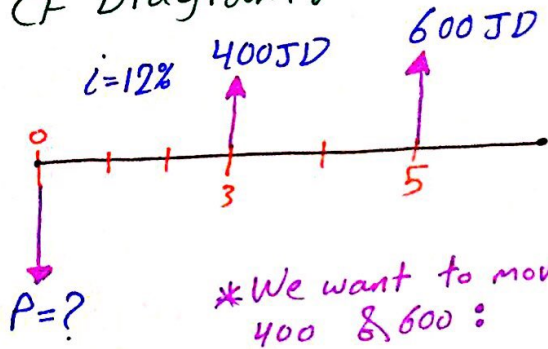 CF Diagram
i=12% 400JD 600JD
0 3 5
P=?
*We want to
400 & 600 :